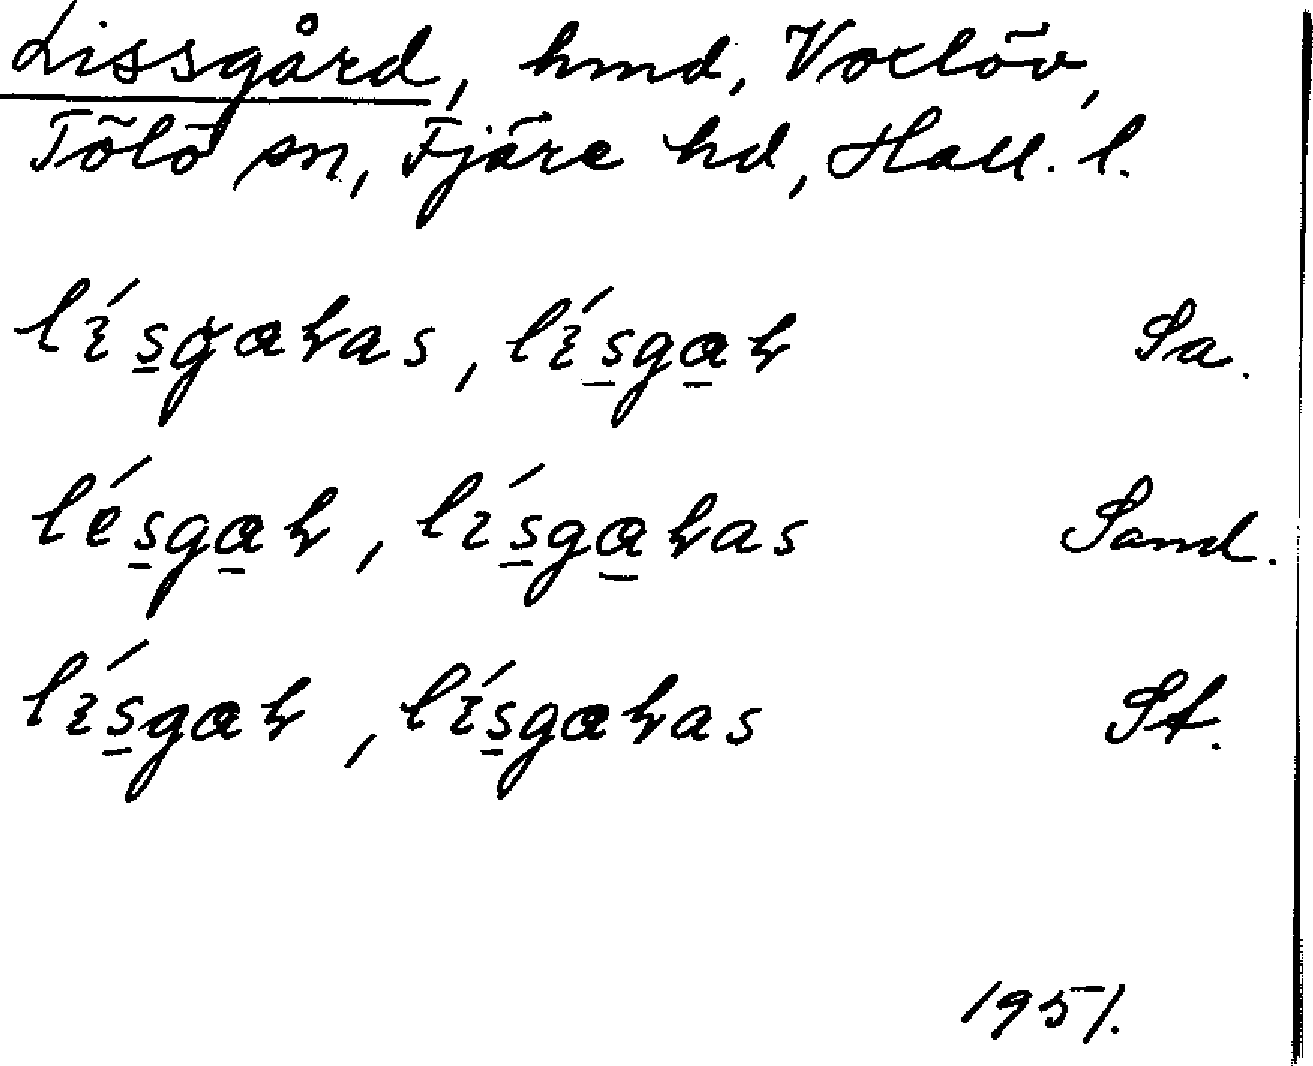 Lissgård, hmd, Voxlöv,
Tölö sn, Fjäre hd, Hall. l.
lísgaras, lísgar Sa.
lésgar, lísgaras Sand.
lísgar, lísgaras St.
1951.